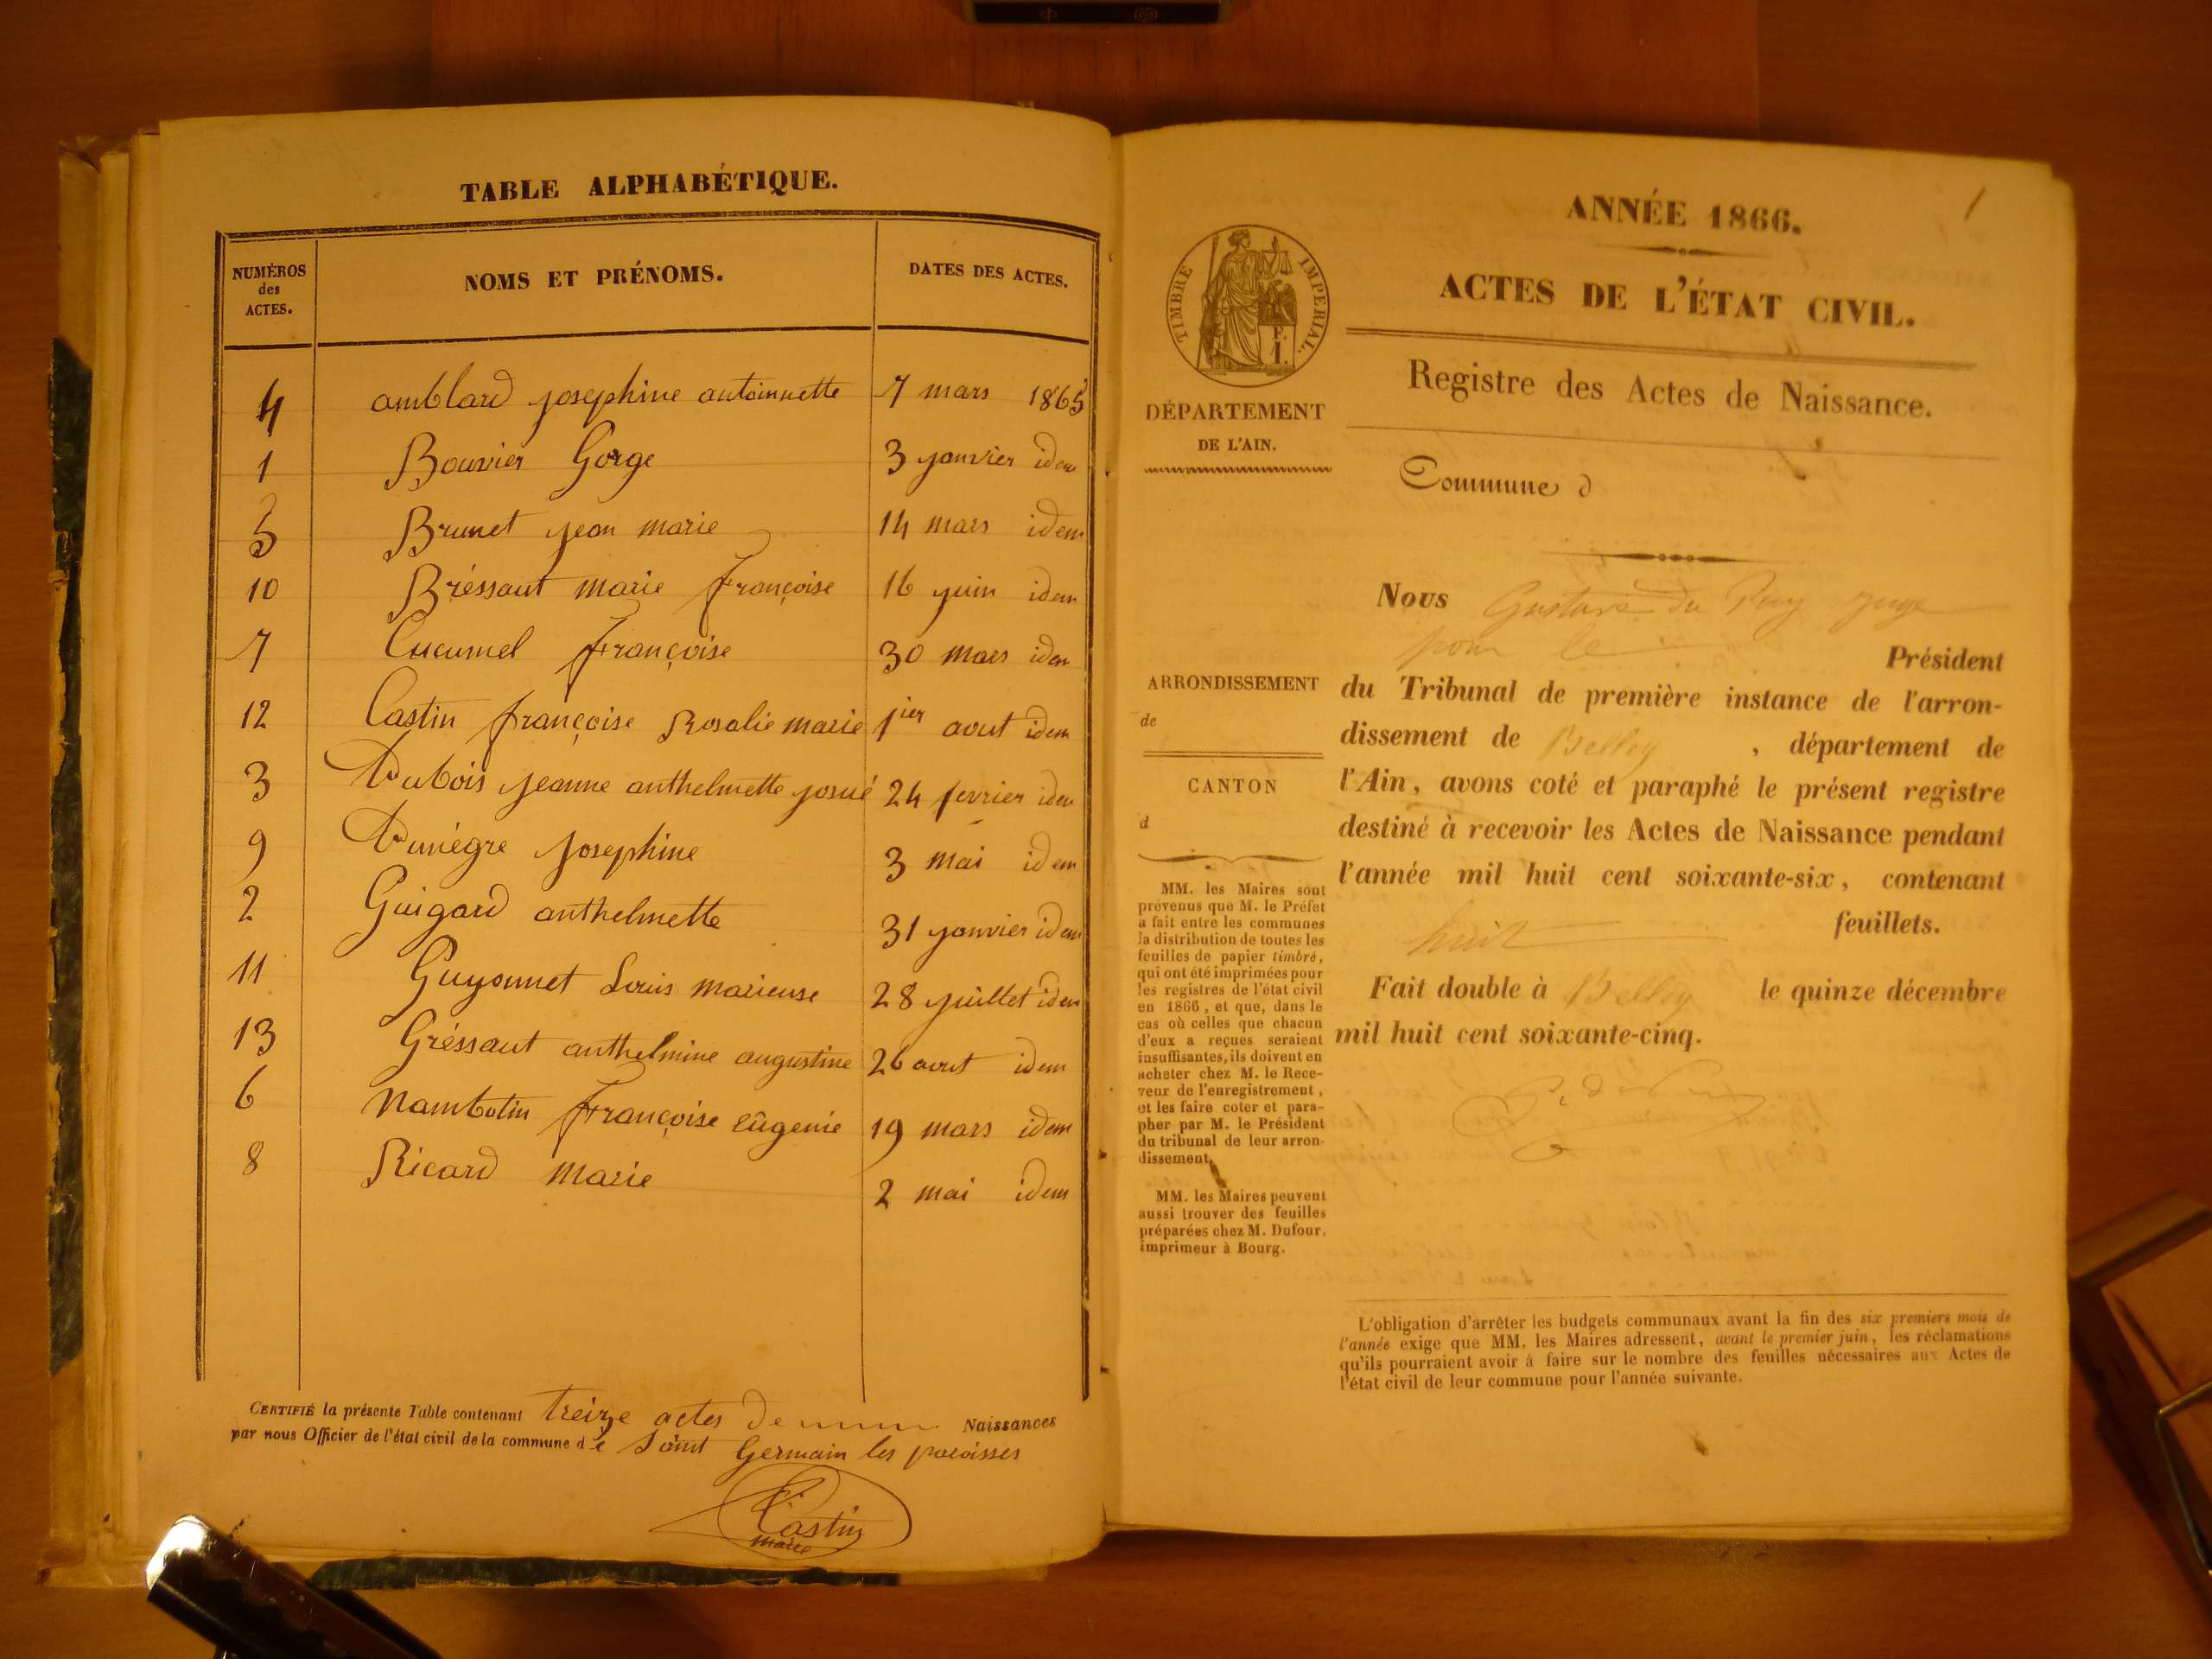 TABLE ALPHABÉTIQUE.
NUMÉROS des ACTES. NOMS ET PRÉNOMS. DATES DES ACTES.
4 amblard josephine antoinette 7 mars 1865
1 Bouvier Gorge 3 janvier idem
5 Brunet jean marie 14 mars idem
10 Bréssaut marie françoise 16 juin idem
7 Cucumel françoise 30 mars idem
12 Castin françoise Rosalie marie 1ier aout idem
3 Dubois jeanne anthelmette josué 24 fevrier idem
9 Dunégre josephine 3 mai idem
2 Guigard anthelmette 31 janvier idem
11 Guyonnet Louis marieuse 28 juillet idem
13 Gréssaut anthelmine augustine 26 aout idem
6 Nambotin françoise eûgenie 19 mars idem
8 Ricard marie 2 mai idem
CERTIFIÉ la présente Table contenant treize actes de Naissances
par nous Officier de l'état civil de la commune de saint Germain les paroisses
Castin
maire
1
ANNÉE 1866.
ACTES DE L'ÉTAT CIVIL.
Registre des Actes de Naissance.
TIMBRE IMPÉRIAL.
E.
1.
DÉPARTEMENT
DE L'AIN.
ARRONDISSEMENT
de
CANTON
d
MM. les Maires sont
prévenus que M. le Préfet
a fait entre les communes
la distribution de toutes les
feuilles de papier timbré,
qui ont été imprimées pour
les registres de l'état civil
en 1866, et que, dans le
cas où celles que chacun
d'eux a reçues seraient
insuffisantes, ils doivent en
acheter chez M. le Rece-
veur de l'enregistrement,
et les faire coter et para-
pher par M. le Président
du tribunal de leur arron-
dissement.
MM. les Maires peuvent
aussi trouver des feuilles
préparées chez M. Dufour,
imprimeur à Bourg.
Commune d
Nous Gustave du Puy juge
pour le Président
du Tribunal de première instance de l'arron-
dissement de Belley , département de
l'Ain, avons coté et paraphé le présent registre
destiné à recevoir les Actes de Naissance pendant
l'année mil huit cent soixante-six, contenant
huit feuillets.
Fait double à Belley le quinze décembre
mil huit cent soixante-cinq.
L'obligation d'arrêter les budgets communaux avant la fin des six premiers mois de
l'année exige que MM. les Maires adressent, avant le premier juin, les réclamations
qu'ils pourraient avoir à faire sur le nombre des feuilles nécessaires aux Actes de
l'état civil de leur commune pour l'année suivante.